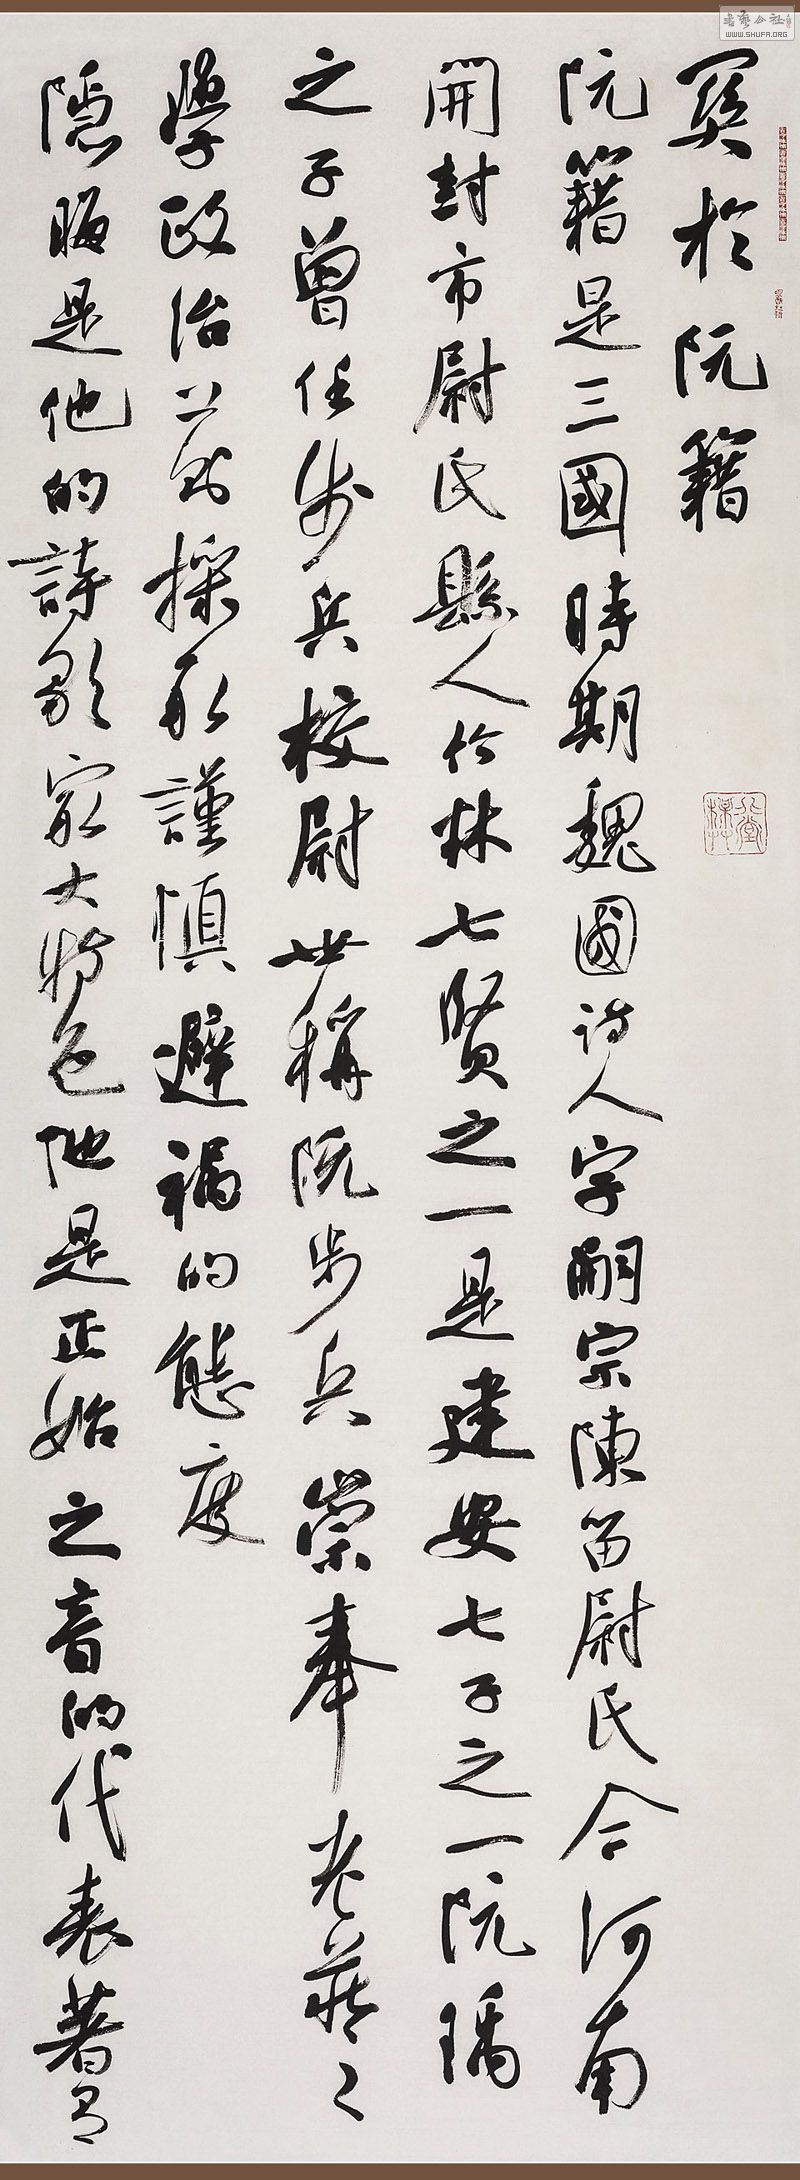 關於阮籍
阮籍是三國時期魏國诗人字嗣宗陳留尉氏今河南
開封市尉氏縣人竹林七賢之一是建安七子之一阮瑀
之子曾任步兵校尉世稱阮步兵崇奉老莊之
學政治上則採取謹慎避禍的態度
隱晦是他的詩歌最大特色他是正始之音的代表著有
書藝公社
WWW.SHUFA.ORG